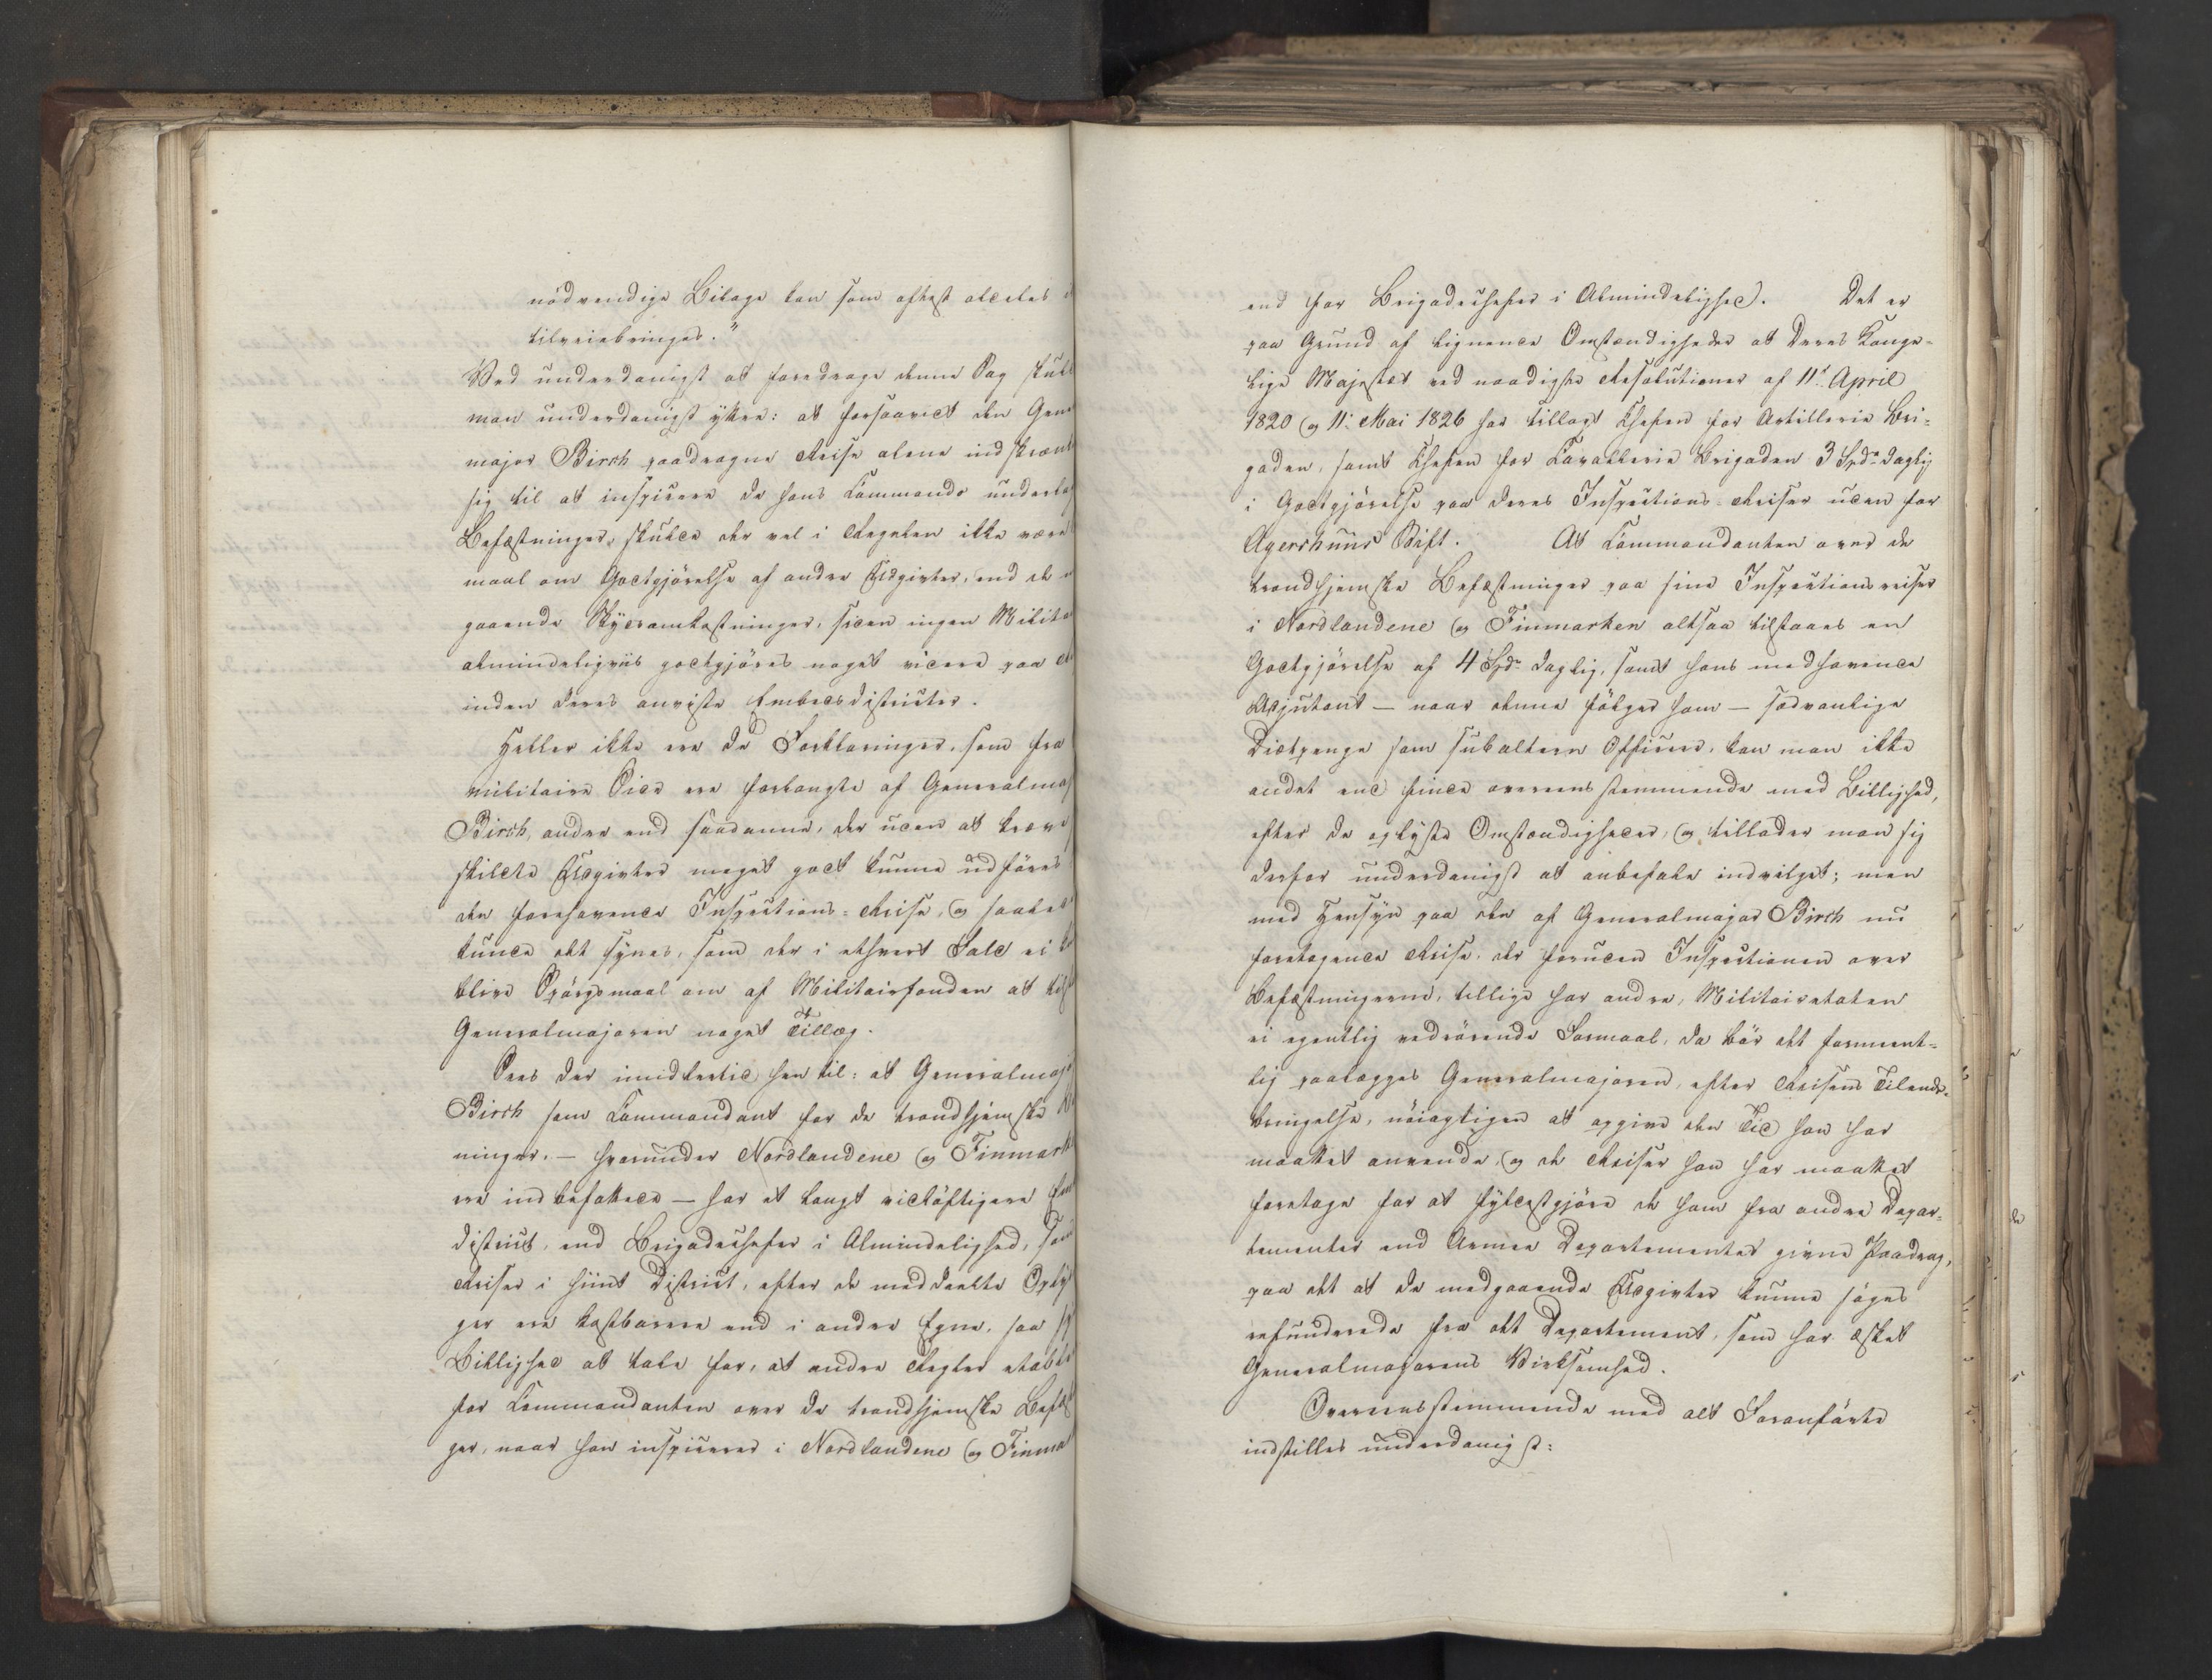 nødvendige Bilage kan som oftest aldeles
tilveiebringes."
Ved underdanigst at foredrage denne Sag skul
man underdanigst yttre: at forsaavidt den Gene
major Birch paadragne Reise alene indskrænk
sig til at inspicere de hans Commando underlag
Befæstninger, skulde der vel i Regelen ikke være
maal om Godtgjörelse af andre Udgivter, end de
gaaende Skydsomkostninger, siden ingen Milita
almindeligviis godtgjöres noget videre paa
inden deres anviste Embedsdistricter.
Heller ikke ere de Forklaringer, som fra
militaire Side ere forlangte af Generalmaj
Birch, andre end saadanne, der uden at kræve
skildte Udgivter meget godt kunne udföres
den forehavende Inspections-Reise, og saaled
kunde det synes, som der i ethvert Fald ei
blive Spörgsmaal om af Militairfonden at tilst
Generalmajoren noget Tillæg.
Sees der imidlertid hen til: at Generalmajo
Birch som Commandant for de trondhjemske
ninger, — hvorunder Nordlandene og Finmark
ere indbefattede — har et langt vidtløftigere Em
district, end Brigadechefer i Almindelighed, sam
Reiser i hiint District, efter de meddeelte Oplys
ger ere kostbarere end i andre Egne, saa
Billighed at tale for, at andre Regler etable
for Commandanten over de trondhjemske Befæst
ger, naar han inspicerer i Nordlandene og Finma
end for Brigadechefer i Almindelighed. Det er
paa Grund af lignende Omstændigheder at Deres Konge-
lige Majestæt ved naadigste Resolutioner af 11te April
1820 og 11. Mai 1826 har tillagt Chefen for Artillerie Bri-
gaden, samt Chefen for Cavallerie Brigaden 3 Spd. daglig
i Godtgjörelse paa deres Inspections-Reiser uden for
Agershuus Stift. At Commandanten over de
trondhjemske Befæstninger paa sine Inspectionsreiser
i Nordlandene og Finmarken altsaa tilstaaes en
Godtgjörelse af 4 Spd. daglig, samt hans medhavende
Adjutant — naar denne fölger ham — sædvanlige
Diætpenge som subaltern Officeer, kan man ikke
andet end finde overeensstemmende med Billighed,
efter de oplyste Omstændigheder, og tillader man sig
derfor underdanigst at anbefale indvilget; men
med Hensyn paa den af Generalmajor Birch nu
foretagende Reise, der foruden Inspectionen over
Befæstningerne, tillige har andre, Militairetaten
ei egentlig vedrörende Formaal, da bör det forment-
lig paalægges Generalmajoren, efter Reisens Tilende-
bringelse, nöiagtigen at opgive den Tid han har
maattet anvende, og de Reiser han har maattet
foretage for at fyldestgjöre de ham fra andre Depar-
tementer end Armee Departementet givne Paadrag,
paa det at de medgaaende Udgivter kunne söges
refunderede fra det Departement, som har æsket
Generalmajorens Virksomhed.
Overeensstemmende med alt Foranförte
indstilles underdanigst: